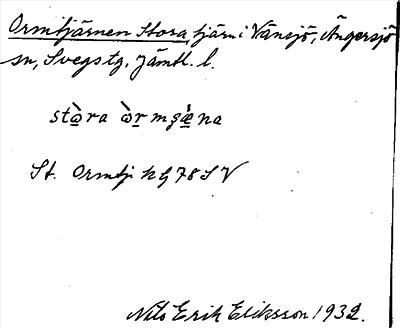 Ormtjärnen Stora, tjärn i Vänsjö, Ängersjö
sn, Svegs tg. Jämtl. l.
stὼra ὼrmʂæ̀na
St. Ormtj kg 78 S V
Nils Erik Eliksson 1932.